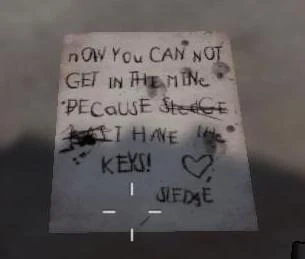 nOW YOU CAN NOT
GET IN THE MINe
BECAUSE SledGE
I HAVE the
KEYS!
SlEDgE